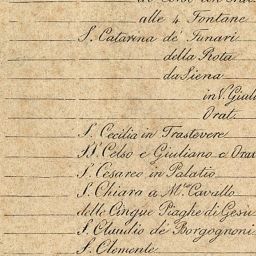 alle 4 Fontane
S. Catarina de' Funari
della Rota
da Siena
in V. Giuli
Orat.
S. Cecilia in Trastevere
SS. Celso e Giuliano e Orat
S. Cesareo in Palatio
S. Chiara a M.te Cavallo
delle Cinque Piaghe di Gesu
S. Claudio de' Borgognoni
S. Clemente